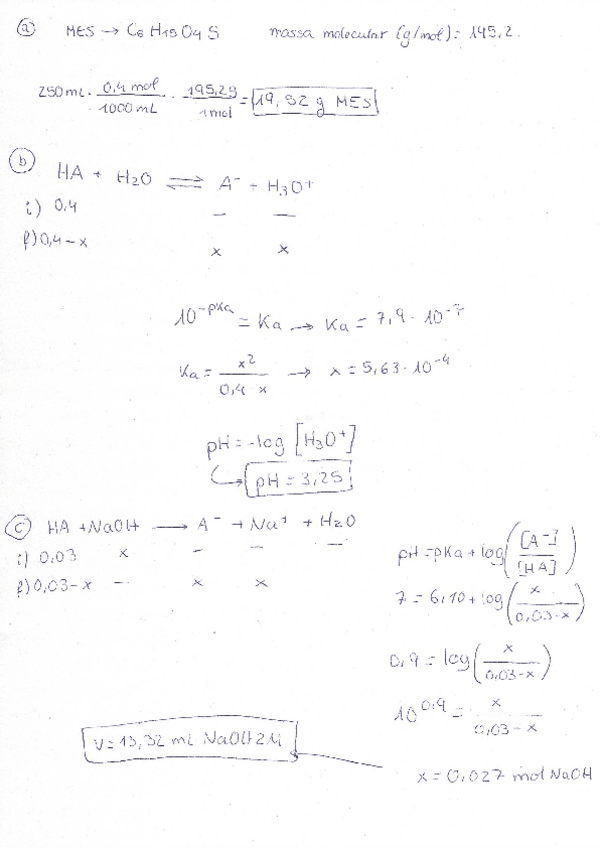 a MES → C6 H15 O4 S massa molecular (g/mol) = 195,2.
250 mL · 0,4 mol / 1000 mL · 195,2 g / 1 mol = 19,52 g MES
b HA + H2O ⇌ A⁻ + H3O⁺
i) 0,4 — —
f) 0,4-x x x
10^-pKa = Ka → Ka = 7,9 · 10⁻⁷
Ka = x² / 0,4-x → x = 5,63 · 10⁻⁴
pH = -log [H3O⁺]
pH = 3,25
c HA + NaOH → A⁻ + Na⁺ + H2O
i) 0,03 x — — —
f) 0,03-x — x x
pH = pKa + log ([A⁻] / [HA])
7 = 6,10 + log (x / 0,03-x)
0,9 = log (x / 0,03-x)
10^0,9 = x / 0,03-x
x = 0,027 mol NaOH
V = 13,32 mL NaOH 2M